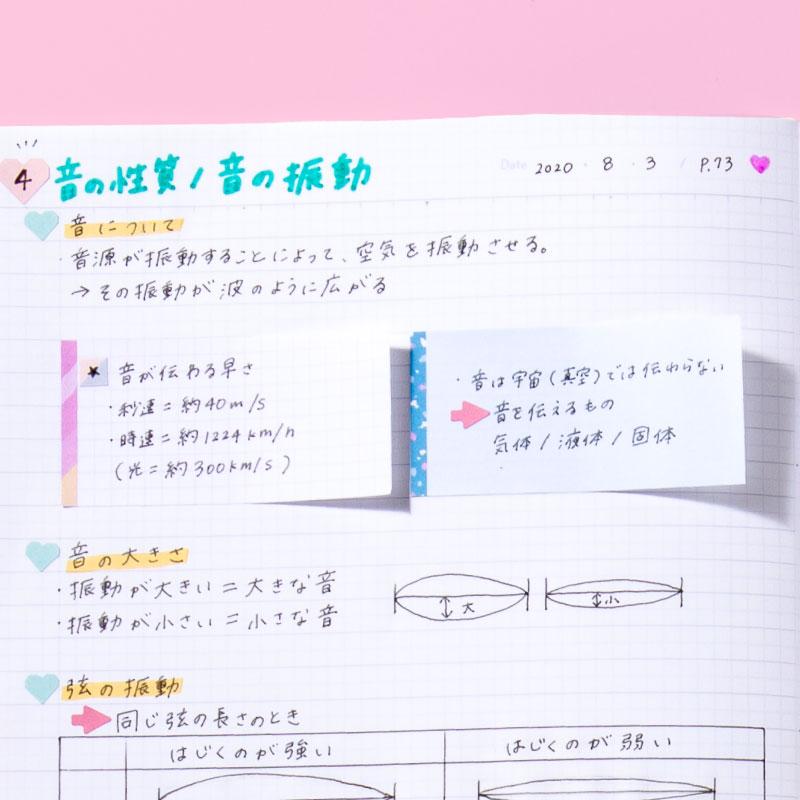 4 音の性質/音の振動
Date 2020 ・ 8 ・ 3 / P.73
音について
・音源が振動することによって、空気を振動させる。
→その振動が波のように広がる
音が伝わる早さ
・秒速=約40m/s
・時速=約1224km/h
(光=約300km/s)
・音は宇宙(真空)では伝わらない
音を伝えるもの
気体/液体/固体
音の大きさ
・振動が大きい=大きな音
・振動が小さい=小さな音
大
小
弦の振動
同じ弦の長さのとき
はじくのが強い
はじくのが弱い